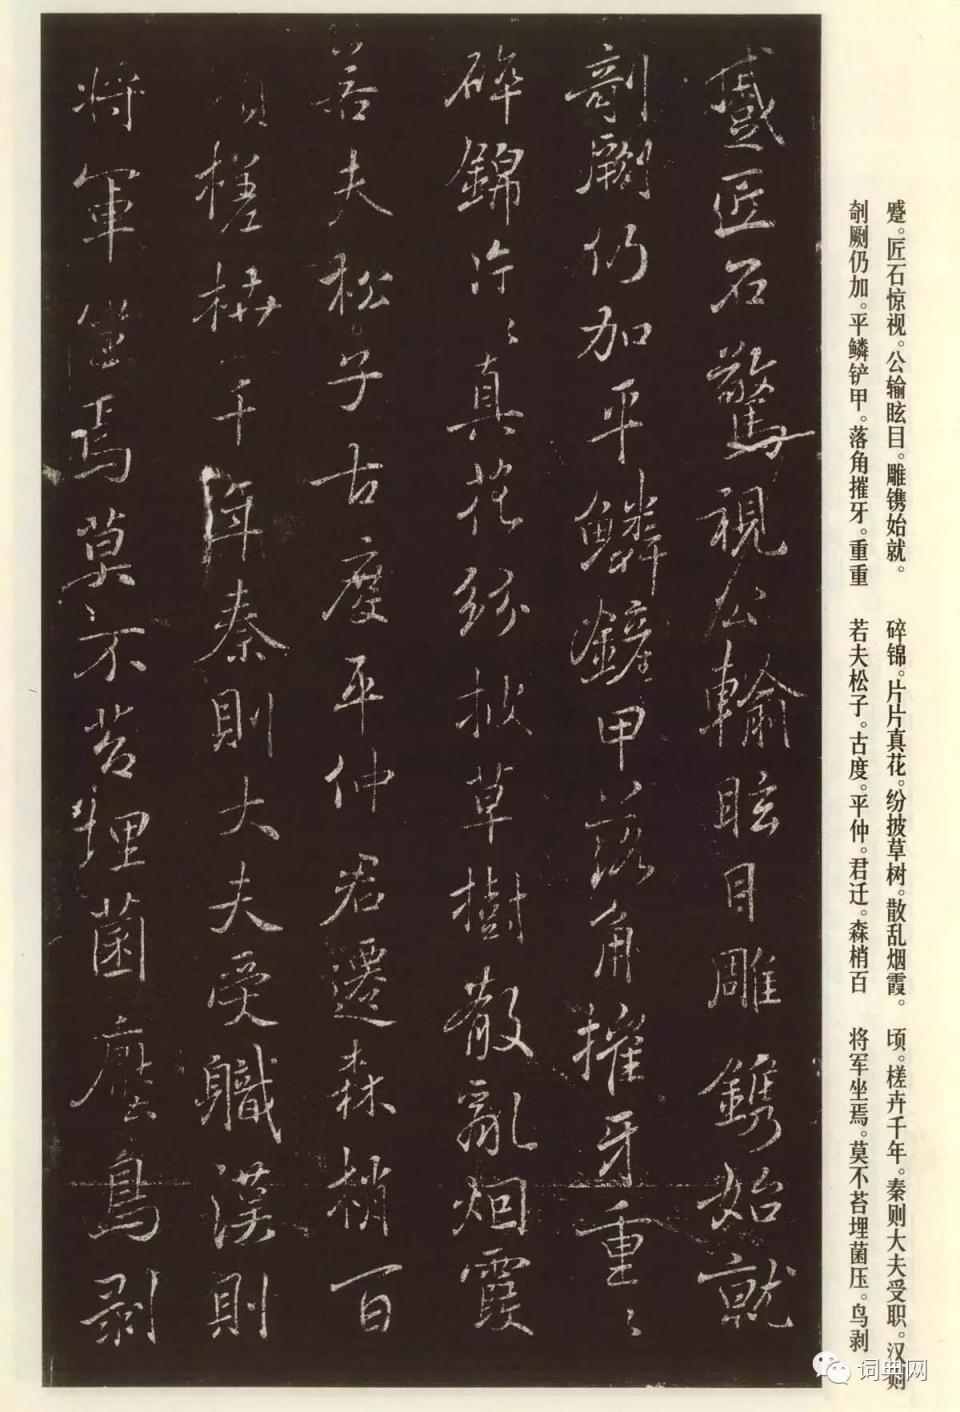 蹙匠石驚視公輸眩目雕鐫始就
剞劂仍加平鱗鏟甲落角摧牙重〻
碎錦片〻真花紛披草樹散亂烟霞
若夫松子古度平仲君遷森梢百
頃槎枿千年秦則大夫受職漢則
將軍坐焉莫不苔埋菌壓鳥剥
蹙。匠石惊视。公输眩目。雕镌始就。
剞劂仍加。平鳞铲甲。落角摧牙。重重
碎锦。片片真花。纷披草树。散乱烟霞。
若夫松子。古度。平仲。君迁。森梢百
顷。槎卉千年。秦则大夫受职。汉则
将军坐焉。莫不苔埋菌压。鸟剥
词典网